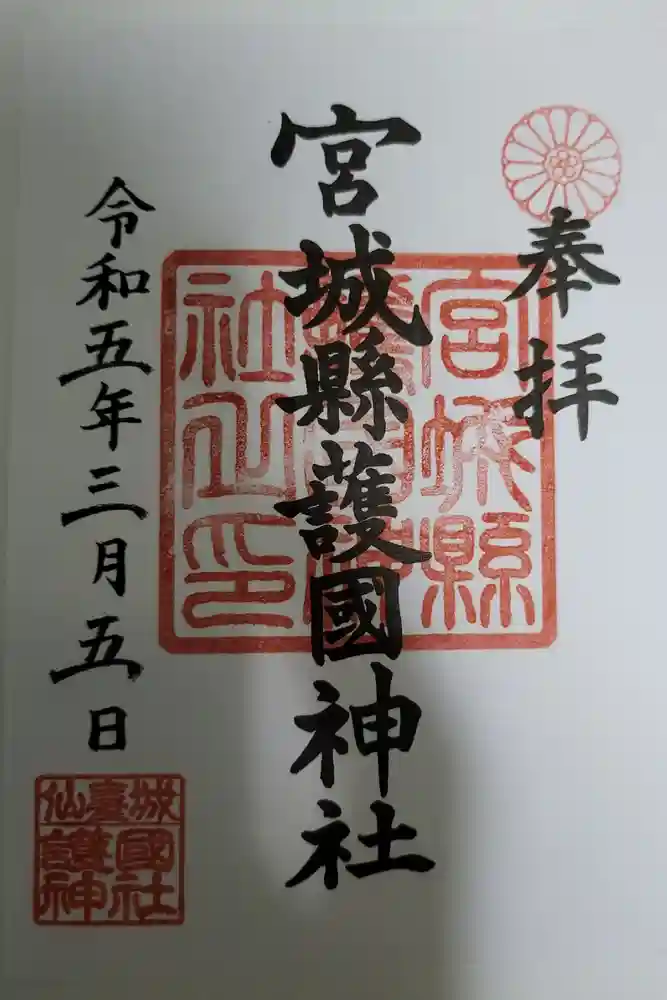 奉拝
宮城縣護國神社
令和五年三月五日
宮城縣
社之印
仙臺城
護國
神社